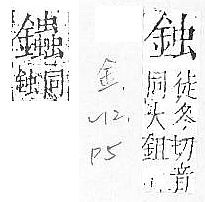 鉵
徒冬切音
同大鉏
金.
v12.
p5
鉵同